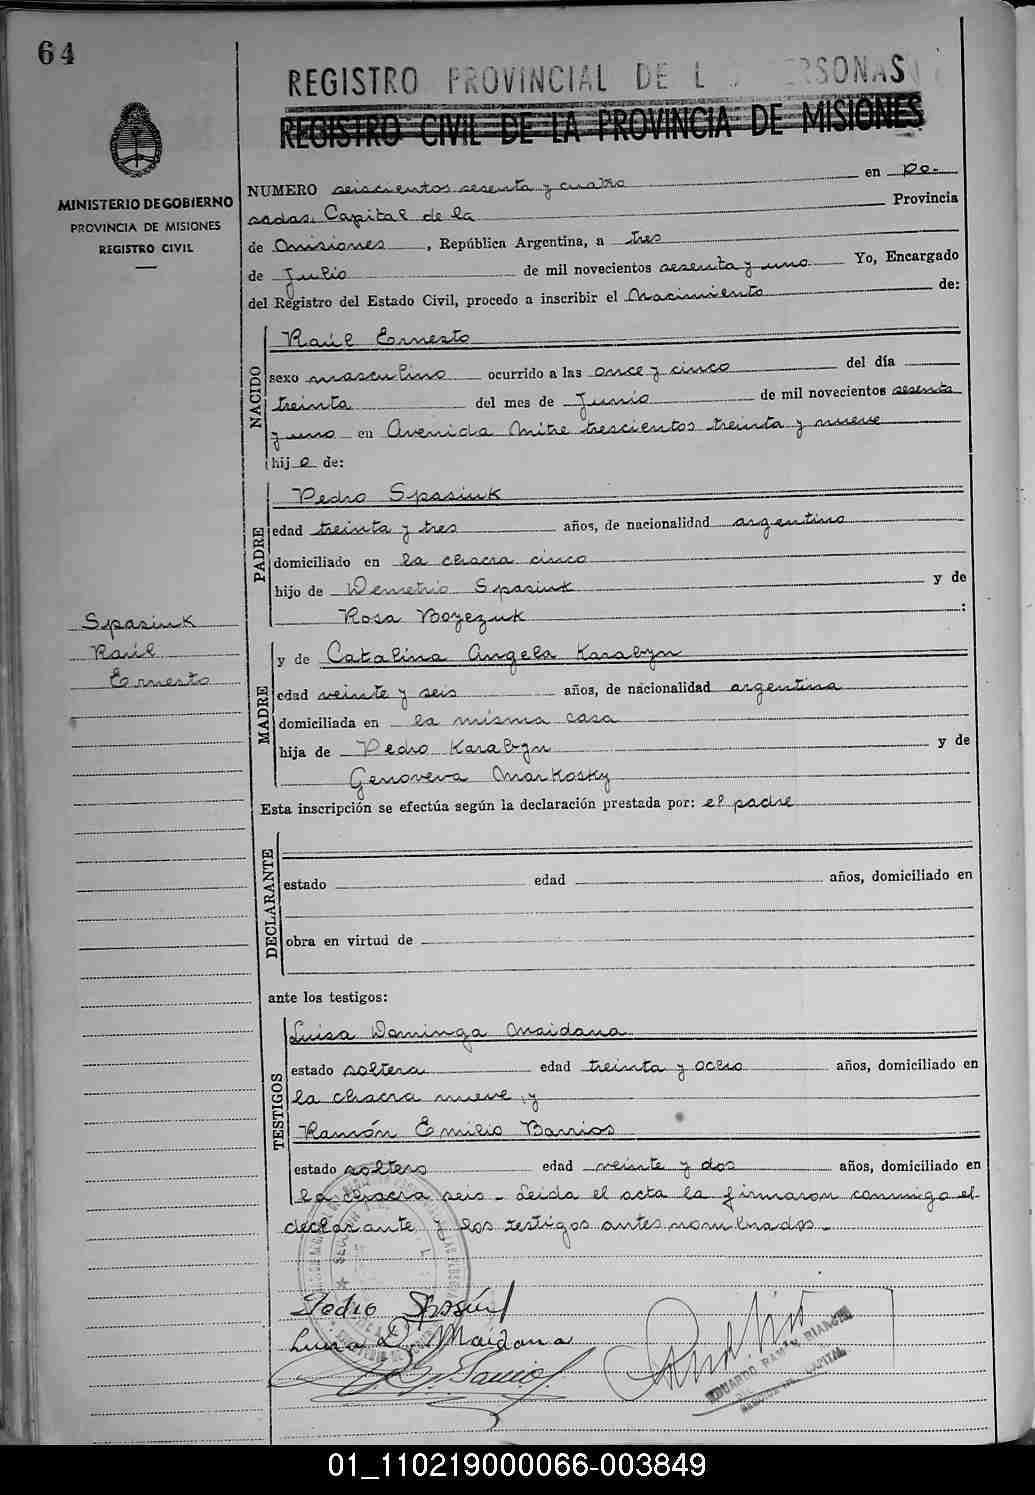 64
REGISTRO PROVINCIAL DE L PERSONAS
REGISTRO CIVIL DE LA PROVINCIA DE MISIONES
MINISTERIO DE GOBIERNO
PROVINCIA DE MISIONES
REGISTRO CIVIL
NUMERO seiscientos sesenta y cuatro en Po-
sadas, Capital de la Provincia
de Misiones, República Argentina, a tres
de Julio de mil novecientos sesenta y uno Yo, Encargado
del Registro del Estado Civil, procedo a inscribir el Nacimiento de:
NACIDO
Raúl Ernesto
sexo masculino ocurrido a las once y cinco del día
treinta del mes de Junio de mil novecientos sesenta
y uno en Avenida Mitre trescientos treinta y nueve
hijo de:
PADRE
Pedro Spasiuk
edad treinta y tres años, de nacionalidad argentino
domiciliado en la chacra cinco
hijo de Demetrio Spasiuk y de
Rosa Boyezuk :
Spasiuk
Raúl
Ernesto
MADRE
y de Catalina Angela Karabyn
edad veinte y seis años, de nacionalidad argentina
domiciliada en la misma casa
hija de Pedro Karabyn y de
Genoveva Markosky
Esta inscripción se efectúa según la declaración prestada por: el padre
DECLARANTE
estado edad años, domiciliado en
obra en virtud de
ante los testigos:
TESTIGOS
Luisa Dominga Maidana
estado soltera edad treinta y ocho años, domiciliado en
la chacra nueve, y
Ramón Emilio Barrios
estado soltero edad veinte y dos años, domiciliado en
la chacra seis - Leida el acta la firmaron conmigo el
declarante y los testigos antes nombrados -
Pedro Spasiuk
Luisa D. Maidana
EDUARDO RAMÓN BIANCHI
CAPITAL
01_110219000066-003849